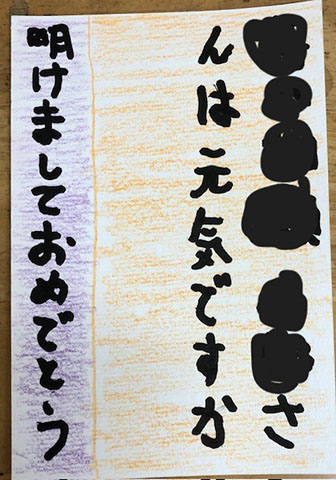 さ
んは元気ですか
明けましておめでとう